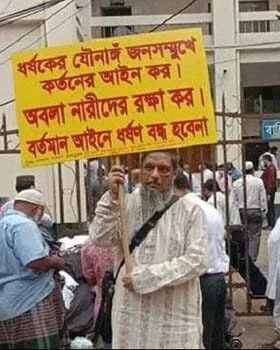 ধর্ষকের যৌনাঙ্গঁ জনসম্মুখে
কর্তনের আইন কর।
অবলা নারীদের রক্ষা কর।
বর্তমান আইনে ধর্ষণ বন্ধ হবেনা